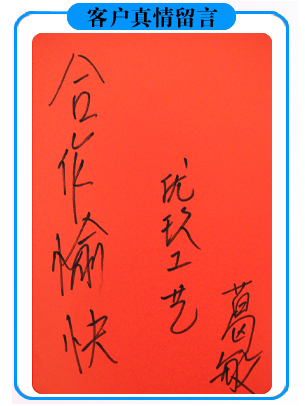 客户真情留言
合作愉快
优玖工艺
葛敏